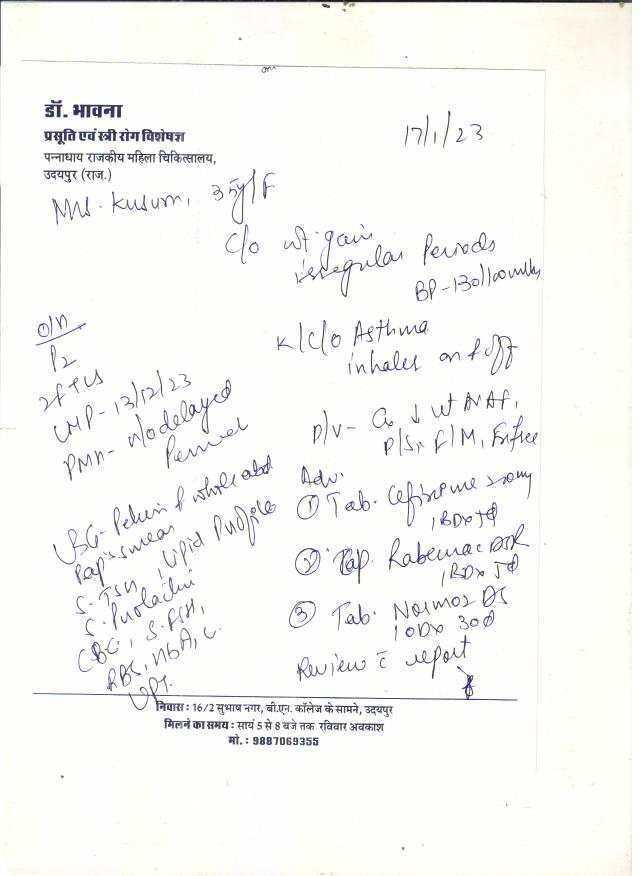 डॉ. भावना
प्रसूति एवं स्त्री रोग विशेषज्ञ
पन्नाधाय राजकीय महिला चिकित्सालय,
उदयपुर (राज.)
17/1/23
Mrs. Kusum, 35y/F
C/o wt gain
irregular Periods
BP-130/100mmHg
K/C/O Asthma
inhaler on & off
P2
LMP-13/12/23
delayed
P/V- Cx ↓ Ut AVAF,
P/S, F/M, Fxfree
USG-Pelvis & whole abd
Pap smear
S. TSH, Lipid Profile
S. Prolactin
CBC, S.FSH,
RBS, HbA,c.
UPT.
Adv.
① Tab. Cefixime 200mg
1BD x 5d
② Cap. Rabemac DSR
1BD x 5d
③ Tab. Normoz DS
1OD x 30d
Review c̄ report
निवास : 16/2 सुभाष नगर, बी.एन. कॉलेज के सामने, उदयपुर
मिलने का समय : सायं 5 से 8 बजे तक रविवार अवकाश
मो. : 9887069355